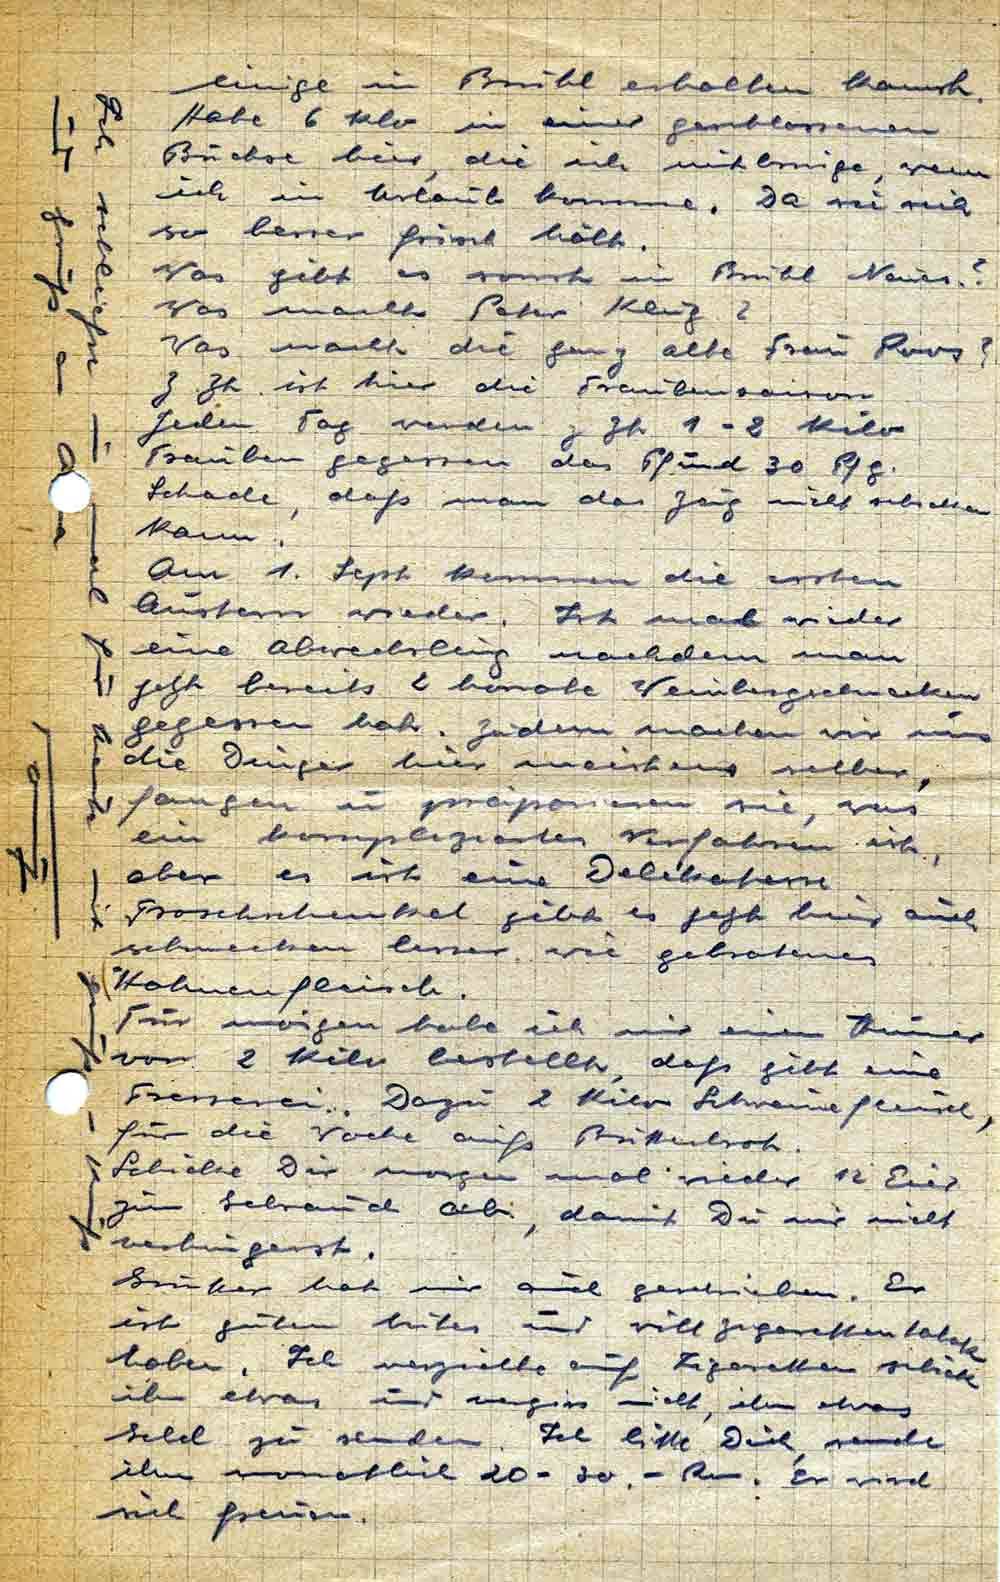 einige in Brühl erhalten kannst.
Habe 6 Klo in einer geschlossenen
Büchse hier, die ich mitbringe, wenn
ich in Urlaub komme. Da sie sich
so besser frisch hält.
Was gibt es sonst in Brühl Neues.?
Was macht Peter Klug?
Was macht die ganz alte Frau Roos?
Z Zt. ist hier die Traubensaison
Jeden Tag werden z Zt 1 - 2 Kilo
Trauben gegessen das Pfund 30 Pfg.
Schade, daß man das Zeug nicht schicken
kann.
Am 1. Sept kommen die ersten
Austern wieder. Ist mal wieder
eine Abwechslung nachdem man
jetzt bereits 2 Monate Weinbergschnecken
gegessen hat. Zudem machen wir uns
die Dinger hier meistens selber,
fangen u präparieren sie, was
ein kompliziertes Verfahren ist,
aber es ist eine Delikatesse
Froschschenkel gibt es jetzt hier auch
schmecken besser wie gebratenes
Hahnenfleisch.
Für morgen habe ich mir einen
von 2 Kilo bestellt, daß gibt eine
Fresserei.. Dazu 2 Kilo Schweinefleisch,
für die Woche aufs Butterbrot.
Schicke Dir morgen mal wieder 12 Eier
zum Gebrauch ab, damit Du mir nicht
verhungerst.
hat mir auch geschrieben. Er
ist guten Mutes und will Zigarettentabak
haben. Ich verzichte auf Zigaretten schick
ihm etwas und vergiss nicht, ihm etwas
Geld zu senden. Ich bitte Dich, sende
ihm monatlich 20 - 30.- Rm. Er wird
sich freuen.
Ich schließe mal für heute mit